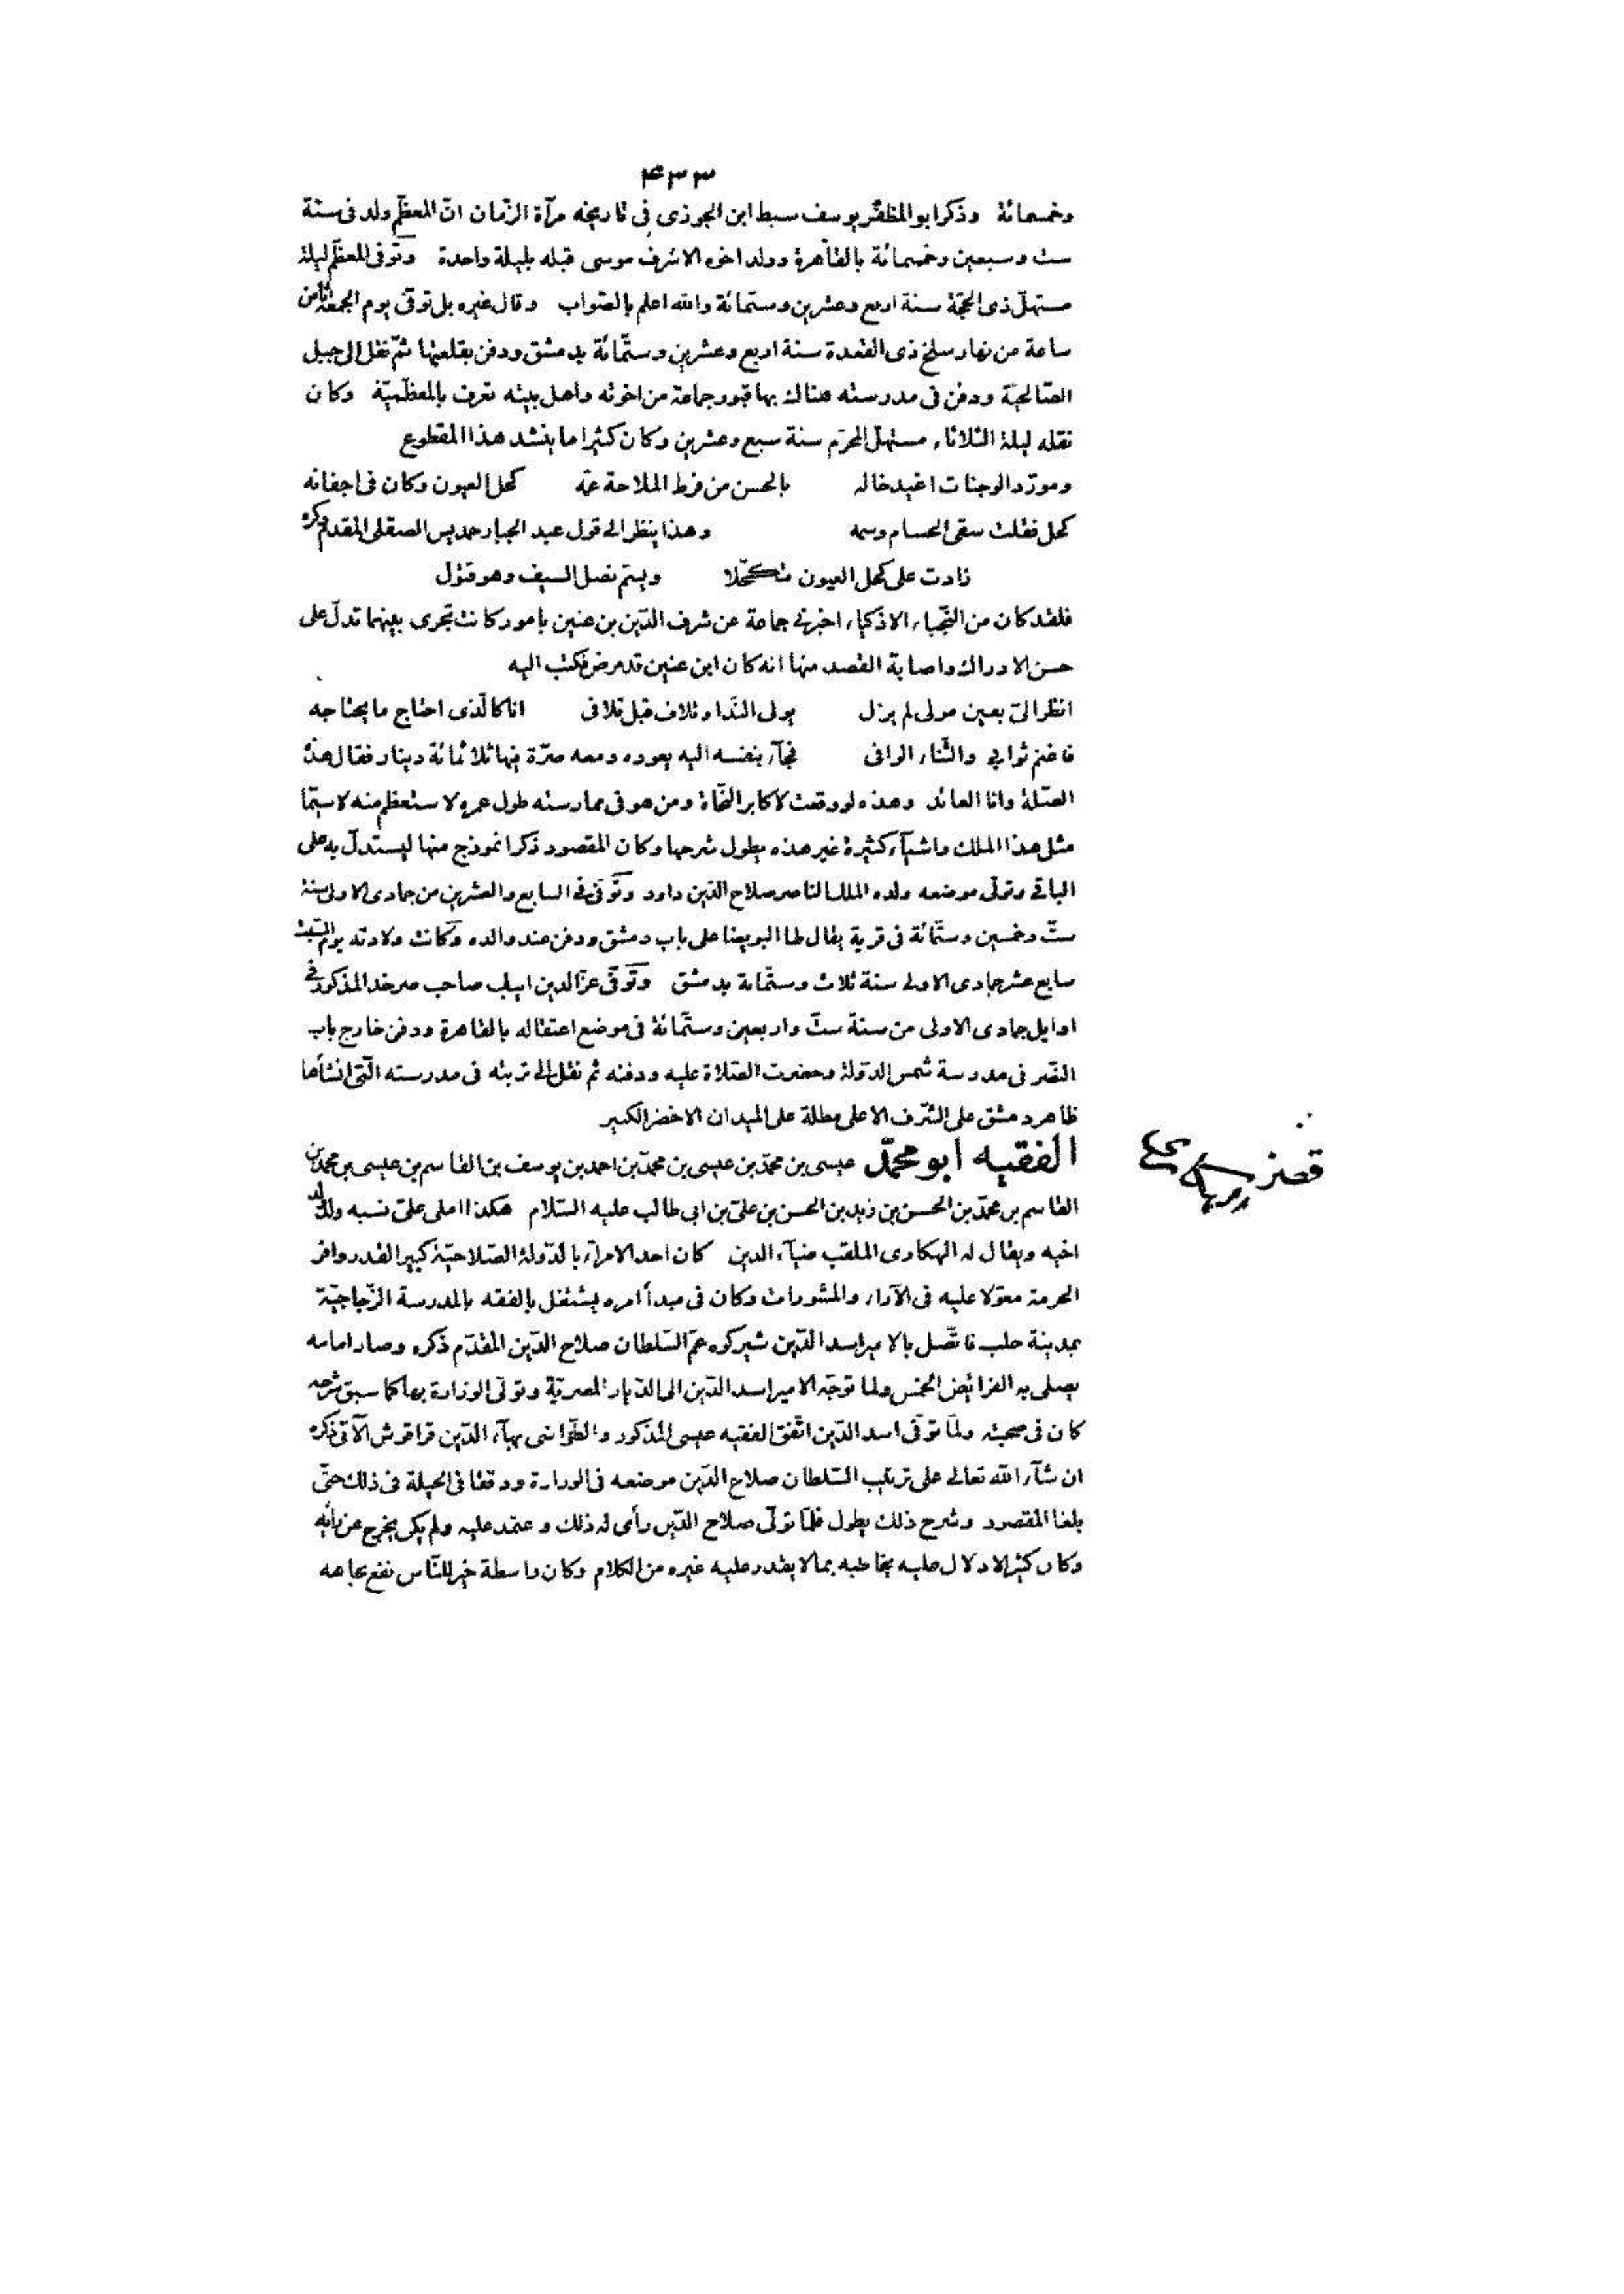 ٤٣٣
وخمسمائة وذكر ابو المظفّر يوسف سبط ابن الجوزى فى تاريخه مرآة الزّمان انّ المعظّم ولد فى سنة
ست وسبعين وخمسمائة بالقاهرة وولد اخوه الاشرف موسى قبله بليلة واحدة وتوفّى المعظّم ليلة
مستهلّ ذى الحجّة سنة اربع وعشرين وستّمائة والله اعلم بالصّواب وقال غيره بل توفّى يوم الجمعة ثامن
ساعة من نهار سلخ ذى القعدة سنة اربع وعشرين وستّمائة بدمشق ودفن بقلعتها ثمّ نقل الى جبل
الصّالحيّة ودفن فى مدرسته هناك بها قبور جماعة من اخوته واهل بيته تعرف بالمعظّميّة وكان
نقله ليلة الثلاثاء مستهلّ المحرّم سنة سبع وعشرين وكان كثيرا ما ينشد هذا المقطوع
ومورّد الوجنات اغيد خاله بالحسن من فرط الملاحة عمّه كحل العيون وكان فى اجفانه
كحل فقلت سقى الحسام وسمه وهذا ينظر الى قول عبد الجبار حمديس الصقلى المقدم ذكره
زادت على كحل العيون تكحّلا ويسّم نصل السيف وهو قتول
فلقد كان من النّجباء الاذكياء اخبرنى جماعة عن شرف الدّين بن عنين بامور كانت تجرى بينهما تدلّ على
حسن الادراك واصابة القصد منها انه كان ابن عنين قد مرض فكتب اليه
انظر الىّ بعين مولى لم يزل يولى النّدا وتلاف قبل تلافى انا كالّذى احتاج ما يحتاجه
فاغنم ثوابى والثّناء الوافى فجآء بنفسه اليه يعوده ومعه صرّة فيها ثلاثمائة دينار فقال هذه
الصّلة وانا العائد وهذه لو وقعت لاكابر النّحاة ومن هو فى ممارسته طول عمره لاستعظم منه لا سيّما
مثل هذا الملك واشيآء كثيرة غير هذه يطول شرحها وكان المقصود ذكر انموذج منها ليستدلّ به على
الباقى وتولّى موضعه ولده الملك الناصر صلاح الدّين داود وتوفّى فى السابع والعشرين من جمادى الاولى سنة
ستّ وخمسين وستّمائة فى قرية يقال لها البويضا على باب دمشق ودفن عند والده وكانت ولادته يوم السّبت
سابع عشر جمادى الاولى سنة ثلاث وستّمائة بدمشق وتوفّى عزّ الدين ايبك صاحب صرخد المذكور فى
اوايل جمادى الاولى من سنة ستّ واربعين وستّمائة فى موضع اعتقاله بالقاهرة ودفن خارج باب
النّصر فى مدرسة شمس الدّولة وحضرت الصّلاة عليه ودفنه ثم نقل الى تربته فى مدرسته الّتى انشأها
ظاهر دمشق على الشّرف الاعلى مطلة على الميدان الاخضر الكبير
الفقيه ابو محمّد عيسى بن محمّد بن عيسى بن محمّد بن احمد بن يوسف بن القاسم بن عيسى بن محمد بن
القاسم بن محمّد بن الحسن بن زيد بن الحسن بن علىّ بن ابى طالب عليه السّلام هكذا املى علىّ نسبه ولد ولد
اخيه ويقال له الهكارى الملقب ضيآء الدين كان احد الامرآء بالدّولة الصّلاحيّة كبير القدر وافر
الحرمة معوّلا عليه فى الآراء والمشورات وكان فى مبدأ امره يشتغل بالفقه بالمدرسة الزّجاجيّة
بمدينة حلب فاتّصل بالامير اسد الدّين شيركوه عمّ السّلطان صلاح الدّين المقدّم ذكره وصار امامه
يصلى به الفرائض الخمس ولما توجّه الامير اسد الدّين الى الدّيار المصريّة وتولّى الوزارة بها كما سبق شرحه
كان فى صحبته ولمّا توفّى اسد الدّين اتّفق الفقيه عيسى المذكور والطّواشى بهآء الدّين قراقوش الآتى ذكره
ان شآء الله تعالى على ترتيب السّلطان صلاح الدّين موضعه فى الوزارة ودقّقا فى الحيلة فى ذلك حتّى
بلغا المقصود وشرح ذلك يطول فلمّا تولّى صلاح الدّين رأى له ذلك واعتمد عليه ولم يكن يخرج عن رأيه
وكان كثير الادلال عليه يخاطبه بما لا يقدر عليه غيره من الكلام وكان واسطة خير للنّاس نفع بجاهه